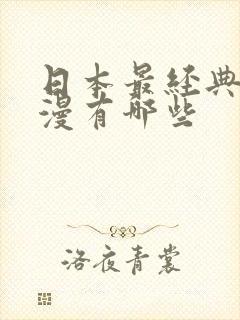 日本最经典
漫有哪些
洛夜青裳